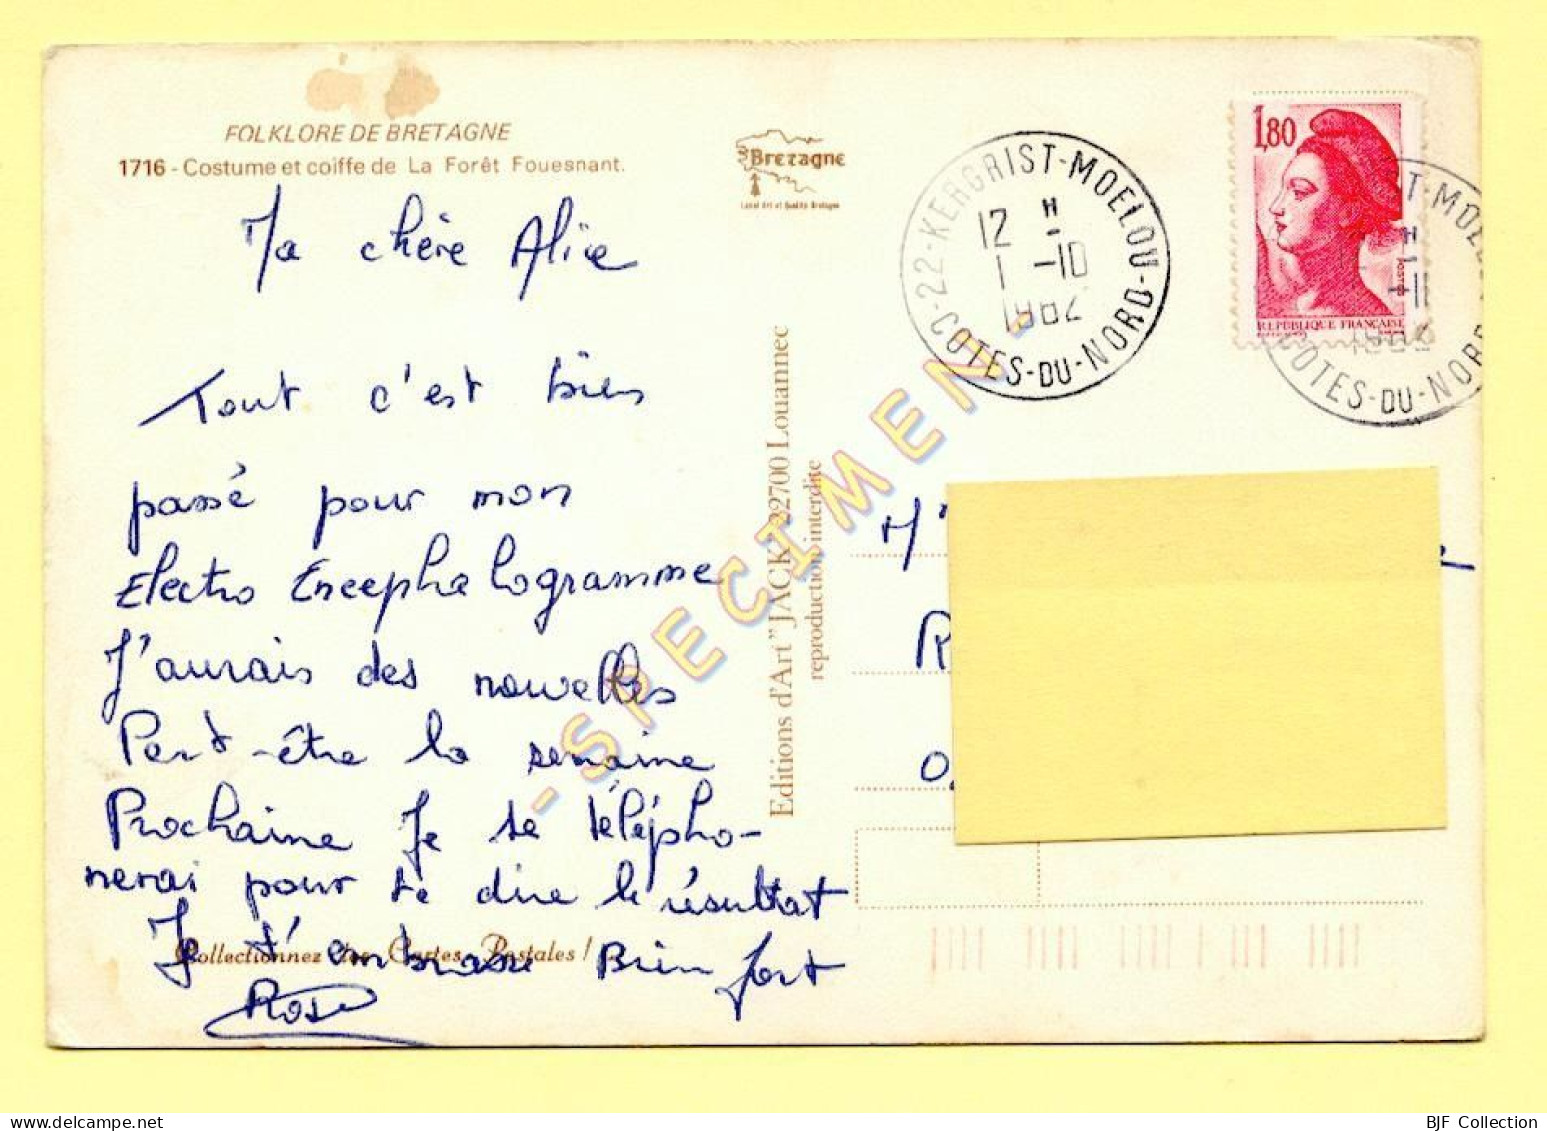 FOLKLORE DE BRETAGNE
1716 - Costume et coiffe de La Forêt Fouesnant.
Bretagne
Label Art et Qualité Bretagne
22-KERGRIST-MOELOU-
12 H
1 -10
1982
COTES-DU-NORD
1,80
POSTES
REPUBLIQUE FRANÇAISE
T-MOEL
COTES-DU-NORD
Ma chère Alice
Tout c'est bien
passé pour mon
Electro Encephalogramme
J'aurais des nouvelles
Peut-être la semaine
Prochaine Je te télépho-
nerai pour te dire le résultat
Je t'embrasse Bien fort
Rose
Collectionnez des Cartes Postales !
Editions d'Art "JACK" 22700 Louannec
reproduction interdite
- SPECIMEN -
M'
R
BJF Collection